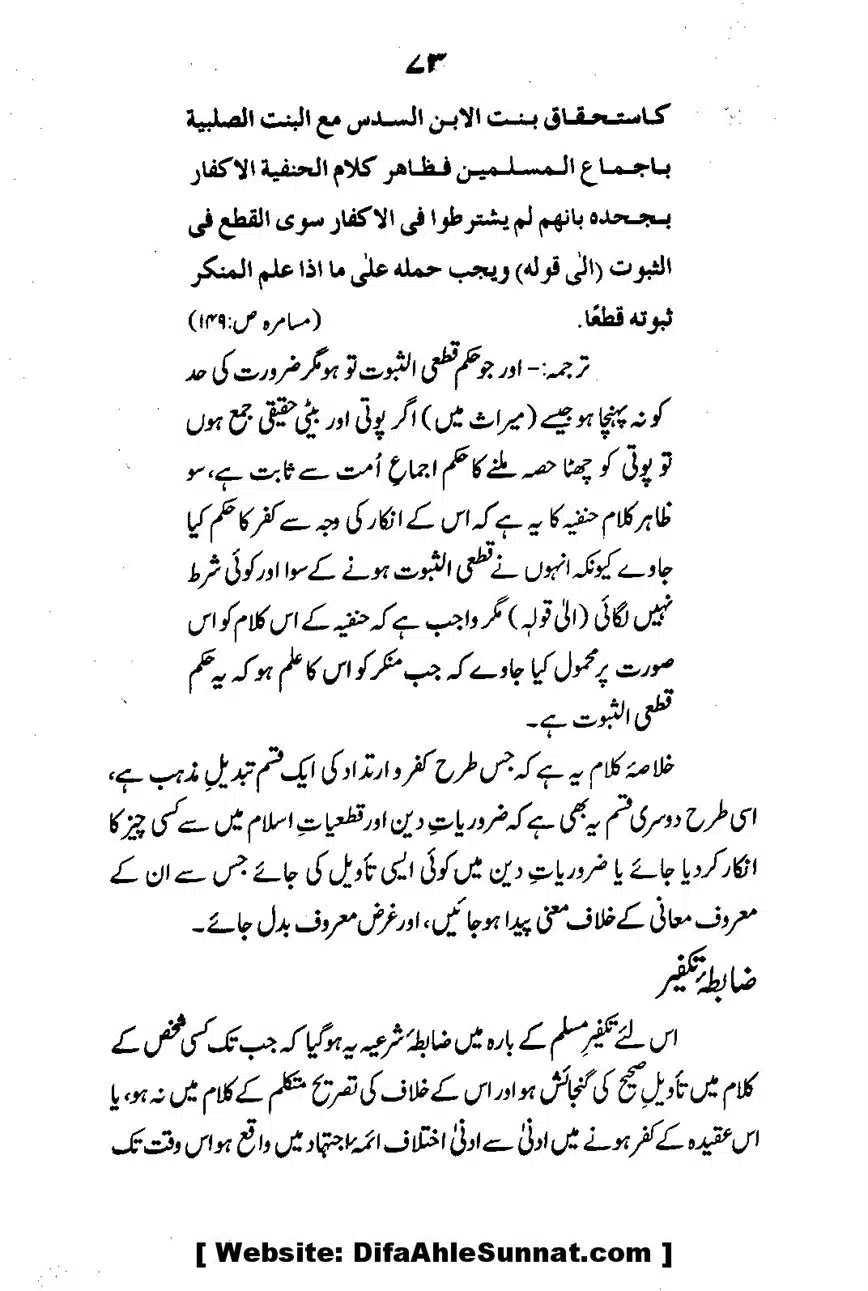 ۷۳
کاستحقاق بنت الابن السدس مع البنت الصلبية
باجماع المسلمين فظاهر كلام الحنفية الاكفار
بجحده بانهم لم يشترطوا فى الاكفار سوى القطع فى
الثبوت (الٰى قوله) ويجب حمله علىٰ ما اذا علم المنكر
ثبوته قطعًا. (مسامرہ ص:۱۴۹)
ترجمہ:- اور جو حکم قطعی الثبوت تو ہو مگر ضرورت کی حد
کو نہ پہنچا ہو جیسے (میراث میں) اگر پوتی اور بیٹی حقیقی جمع ہوں
تو پوتی کو چھٹا حصہ ملنے کا حکم اجماعِ اُمت سے ثابت ہے، سو
ظاہر کلام حنفیہ کا یہ ہے کہ اس کے انکار کی وجہ سے کفر کا حکم کیا
جاوے کیونکہ انہوں نے قطعی الثبوت ہونے کے سوا اور کوئی شرط
نہیں لگائی (الیٰ قولہ) مگر واجب ہے کہ حنفیہ کے اس کلام کو اس
صورت پر محمول کیا جاوے کہ جب منکر کو اس کا علم ہو کہ یہ حکم
قطعی الثبوت ہے۔
خلاصۂ کلام یہ ہے کہ جس طرح کفر و ارتداد کی ایک قسم تبدیلِ مذہب ہے،
اسی طرح دوسری قسم یہ بھی ہے کہ ضروریاتِ دین اور قطعیاتِ اسلام میں سے کسی چیز کا
انکار کردیا جائے یا ضروریاتِ دین میں کوئی ایسی تأویل کی جائے جس سے ان کے
معروف معانی کے خلاف معنی پیدا ہوجائیں، اور غرض معروف بدل جائے۔
ضابطۂ تکفیر
اس لئے تکفیرِ مسلم کے بارہ میں ضابطۂ شرعیہ یہ ہوگیا کہ جب تک کسی شخص کے
کلام میں تأویلِ صحیح کی گنجائش ہو اور اس کے خلاف کی تصریح متکلم کے کلام میں نہ ہو، یا
اس عقیدہ کے کفر ہونے میں ادنیٰ سے ادنیٰ اختلاف ائمۂ اجتہاد میں واقع ہو اس وقت تک
[ Website: DifaAhleSunnat.com ]